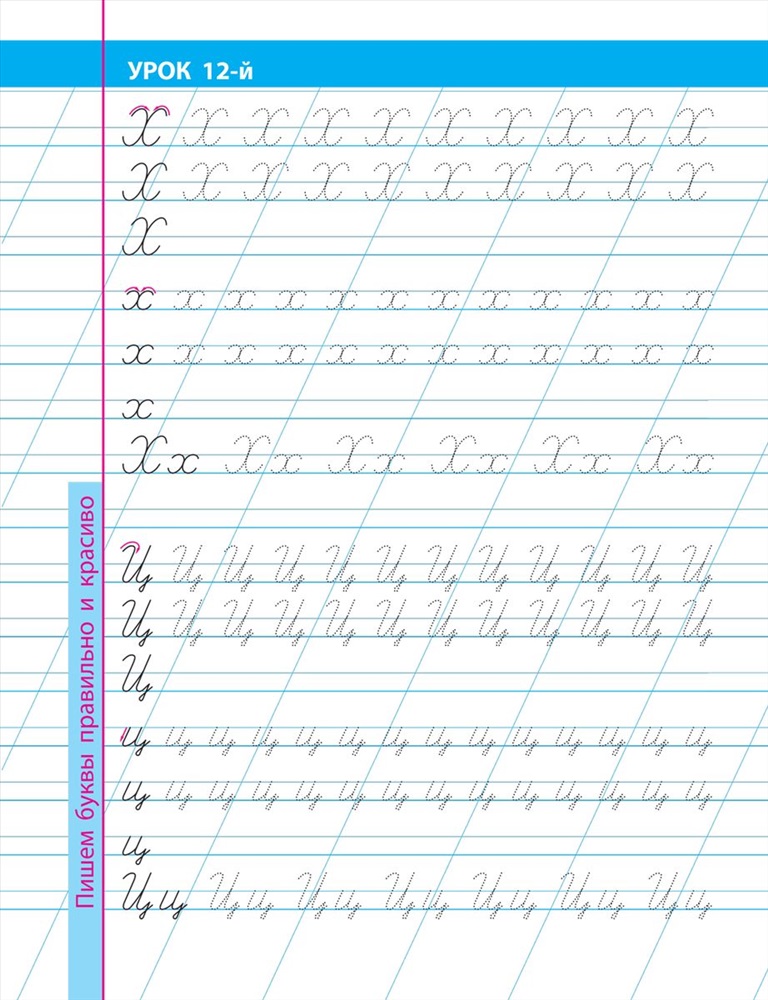 УРОК 12-й
Х Х Х Х Х Х Х Х Х Х
Х Х Х Х Х Х Х Х Х Х
Х
х х х х х х х х х х х х
х х х х х х х х х х х х
х
Хх Хх Хх Хх Хх Хх
Ц Ц Ц Ц Ц Ц Ц Ц Ц Ц Ц Ц
Ц Ц Ц Ц Ц Ц Ц Ц Ц Ц Ц Ц
Ц
ц ц ц ц ц ц ц ц ц ц ц ц ц ц
ц ц ц ц ц ц ц ц ц ц ц ц ц ц
ц
Цц Цц Цц Цц Цц Цц Цц
Пишем буквы правильно и красиво